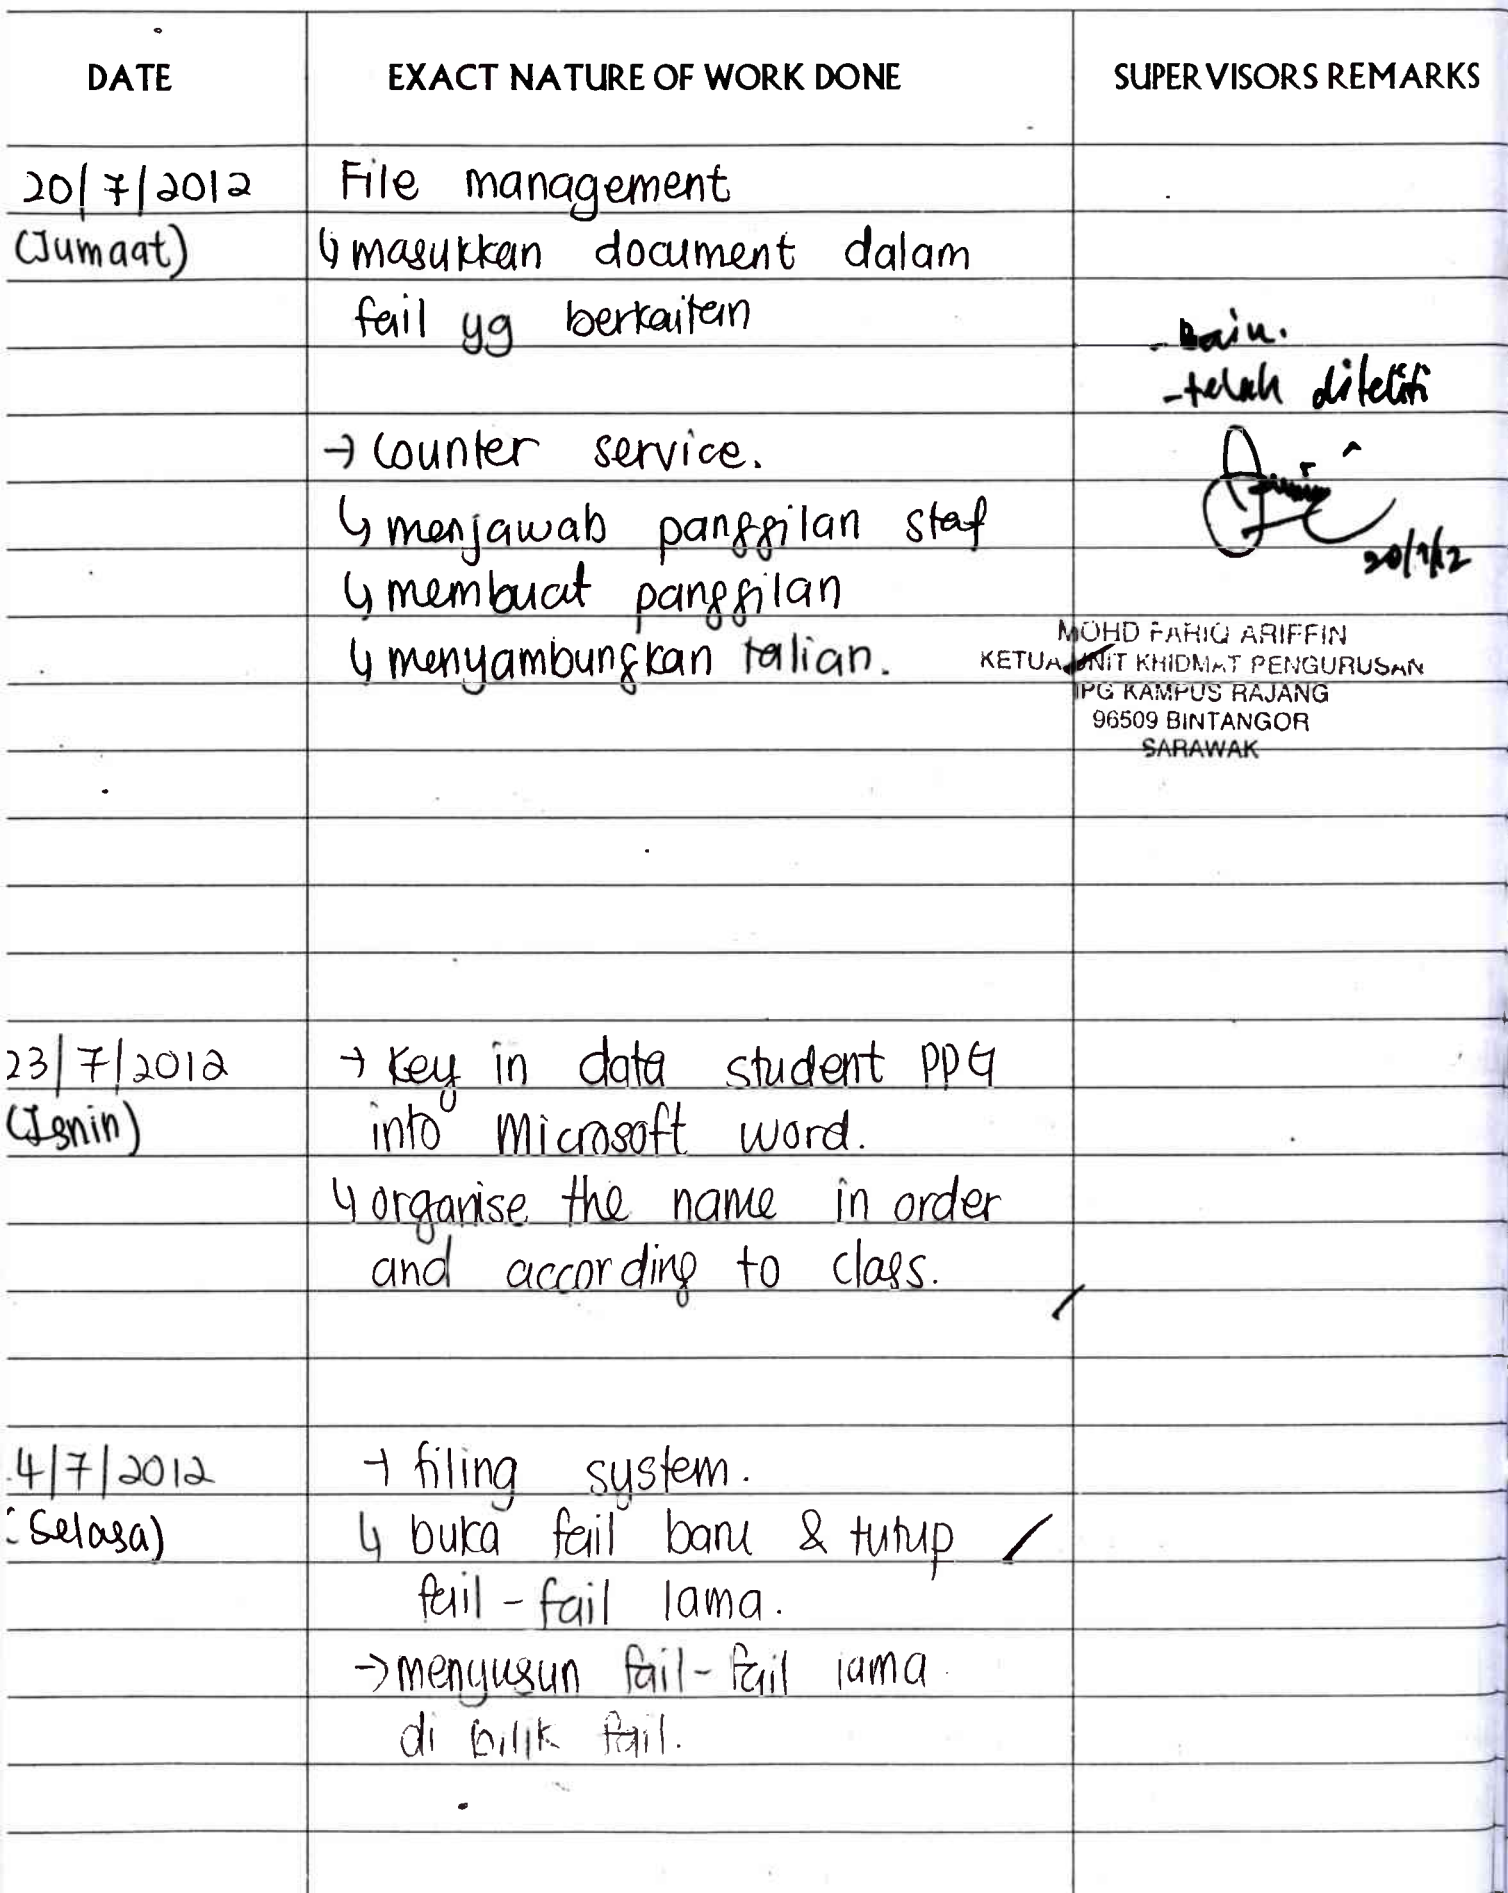 DATE EXACT NATURE OF WORK DONE SUPERVISORS REMARKS
20/7/2012 File management
(Jumaat) ↳ masukkan document dalam
fail yg berkaitan
- baik.
- telah diteliti
→ Counter service.
↳ menjawab panggilan staf
20/7/12
↳ membuat panggilan
↳ menyambungkan talian.
MOHD FARIQ ARIFFIN
KETUA UNIT KHIDMAT PENGURUSAN
IPG KAMPUS RAJANG
96509 BINTANGOR
SARAWAK
23/7/2012 → Key in data student PPG
(Isnin) into Microsoft word.
↳ organise the name in order
and according to class.
4/7/2012 → filing system.
(Selasa) ↳ buka fail baru & tutup
fail-fail lama.
→ menyusun fail-fail lama
di bilik fail.